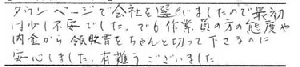 タウンページで会社を選びましたので最初
は少し不安でした。でも作業員の方の態度や
内金から領収書をちゃんと切って下さるのに
安心しました。有難うございました